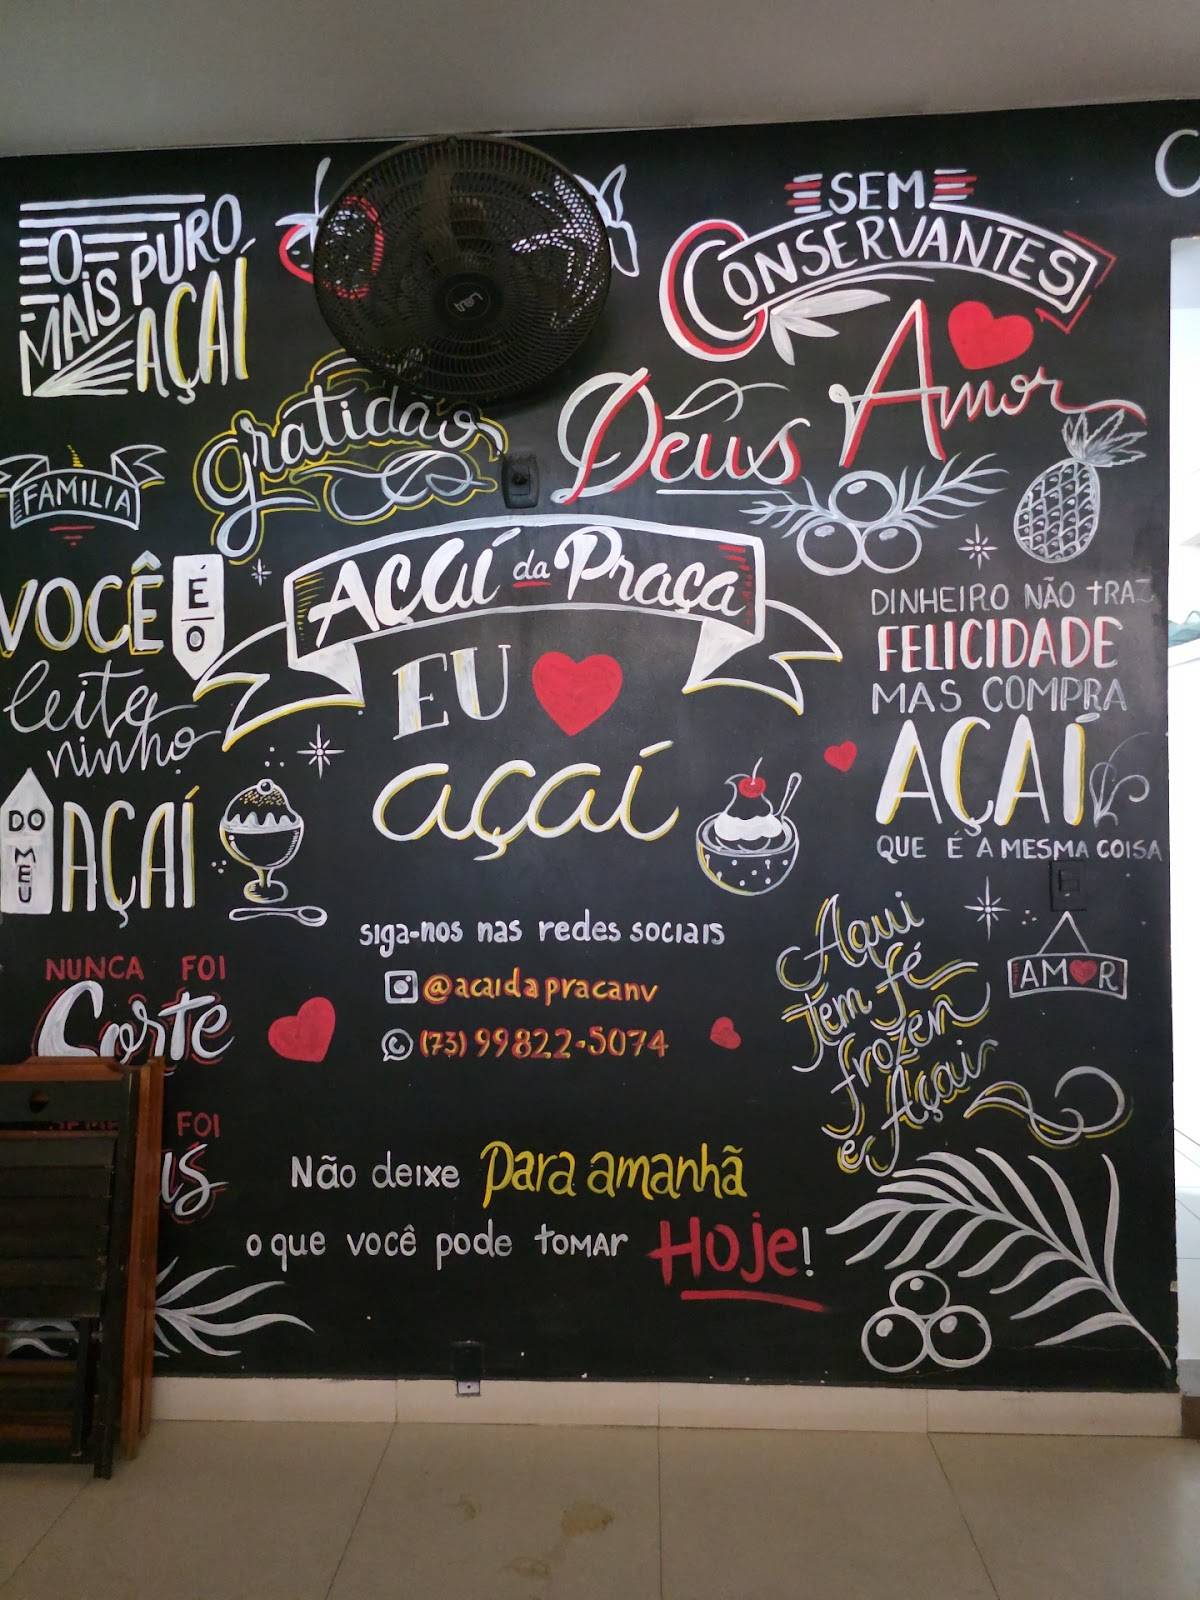 O
MAIS PURO
AÇAÍ
SEM
CONSERVANTES
Gratidão
Deus
Amor
FAMILIA
AÇAÍ da Praça
EU
açaí
VOCÊ É O
leite
ninho
DO MEU
AÇAÍ
DINHEIRO NÃO TRAZ
FELICIDADE
MAS COMPRA
AÇAÍ
QUE É A MESMA COISA
siga-nos nas redes sociais
@acaidapracanv
(73) 99822-5074
NUNCA FOI
Sorte
FOI
Aqui
tem fé
frozen
e Açaí
AMOR
Não deixe para amanhã
o que você pode tomar Hoje!